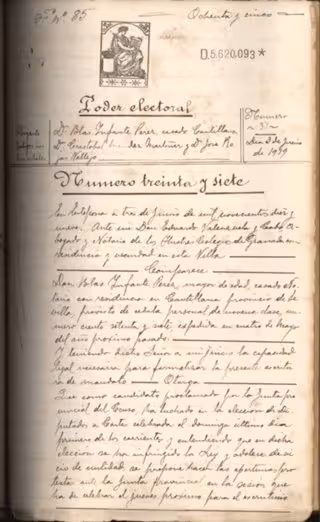 Fº Nº 85
Ochenta y cinco
D.5.620,093*
Poder electoral
D. Blas Infante Perez, casado Cantillana
Dr. Cristobal
y D. José Ro
jas Vallejo
Numero
37
Dia 3 de Junio
de 1919
Numero treinta y siete
En Estepona a tres de Junio de mil novecientos diez y
nueve. Ante mi Don Eduardo Valenzuela y Cabo Ab
ogado y Notario de los Ilustres Colegio de Granada con
residencia y vecindad en esta Villa
Comparece
Don Blas Infante Perez, mayor de edad, casado No
tario con residencia en Cantillana provincia de Se
villa, provisto de cedula personal de novena clase, nu
mero ciento setenta y seis, expedida en cuatro de Mayo
del año proximo pasado.
Y teniendo dicho Señor a mi juicio la capacidad
legal necesaria para formalizar la presente escritu
ra de mandato Otorga
Que como candidato proclamado por la Junta pro
vincial del Censo, ha luchado en la eleccion de Di
putados a Cortes celebrada el domingo ultimo dia
primero de los corrientes, y entendiendo que en dicha
eleccion se ha infringido la Ley y adolece de vi
cio de nulidad, se propone hacer las oportunas pro
testa ante la Junta Provincial, en la sesion que
ha de celebrar el jueves proximo para el escrutinio